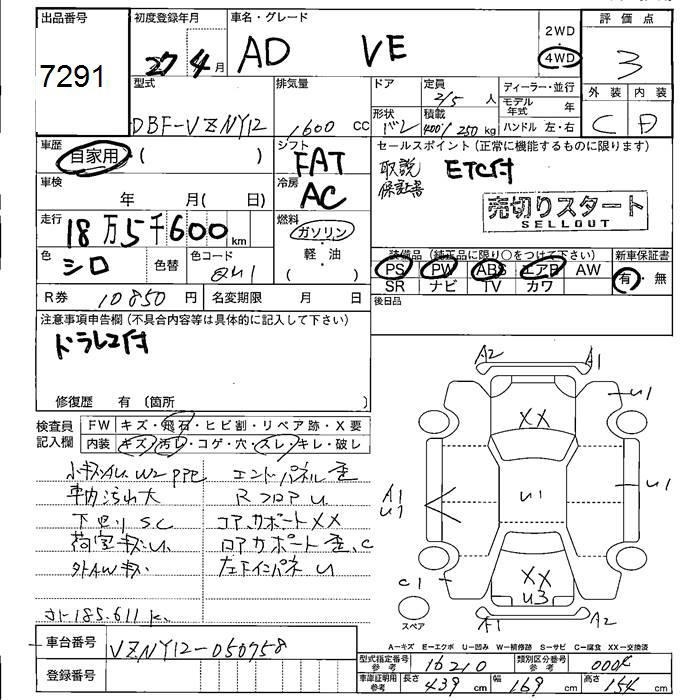 出品番号
7291
初度登録年月
27 4 月
車名・グレード
AD VE
2WD
4WD
評価点
3
外装 内装
C D
型式
DBF-VZNY12
排気量
1600 CC
ドア
定員
2/5 人
形状
バン
積載
400/250 kg
ディーラー・並行
モデル年式 年
ハンドル 左・右
車歴
自家用 ( )
シフト
FAT
セールスポイント (正常に機能するものに限ります)
取説
保証書
ETC付
売切りスタート
SELLOUT
車検
年 月( 日)
冷房
AC
走行
18万5千600 km
燃料
ガソリン
・軽油
( )
色
シロ
色替
色コード
R券 10850 円
名変期限 月 日
装備品 (純正品に限り○をつけて下さい)
PS PW ABS エアB AW
SR ナビ TV カワ
新車保証書
有・無
後日品
注意事項申告欄 (不具合内容等は具体的に記入して下さい)
ドラレコ付
修復歴 有 〔箇所
検査員
記入欄
FW キズ・飛石・ヒビ割・リペア跡・X要
内装 キズ・汚レ・コゲ・穴・スレ・キレ・破レ
小キズAU W2 PPE
車内汚れ大
下回り SC
荷室キズU.
外AWキズ
エンドパネル歪
RフロアU
コアサポートXX
ロアサポート歪.C
左下インパネ U
メーター185.611k.
A2
A1
U1
XX
U1
U1
A1
U1
XX
U3
C1
スペア
A1
A2
A-キズ E-エクボ U-凹み W-補修跡 S-サビ C-腐食 XX-交換済
車台番号
VZNY12-050758
登録番号
型式指定番号
参考
16210
類別区分番号
参考
0004
車庫証明用
参考
長さ 439 cm
幅 169 cm
高さ 154 cm